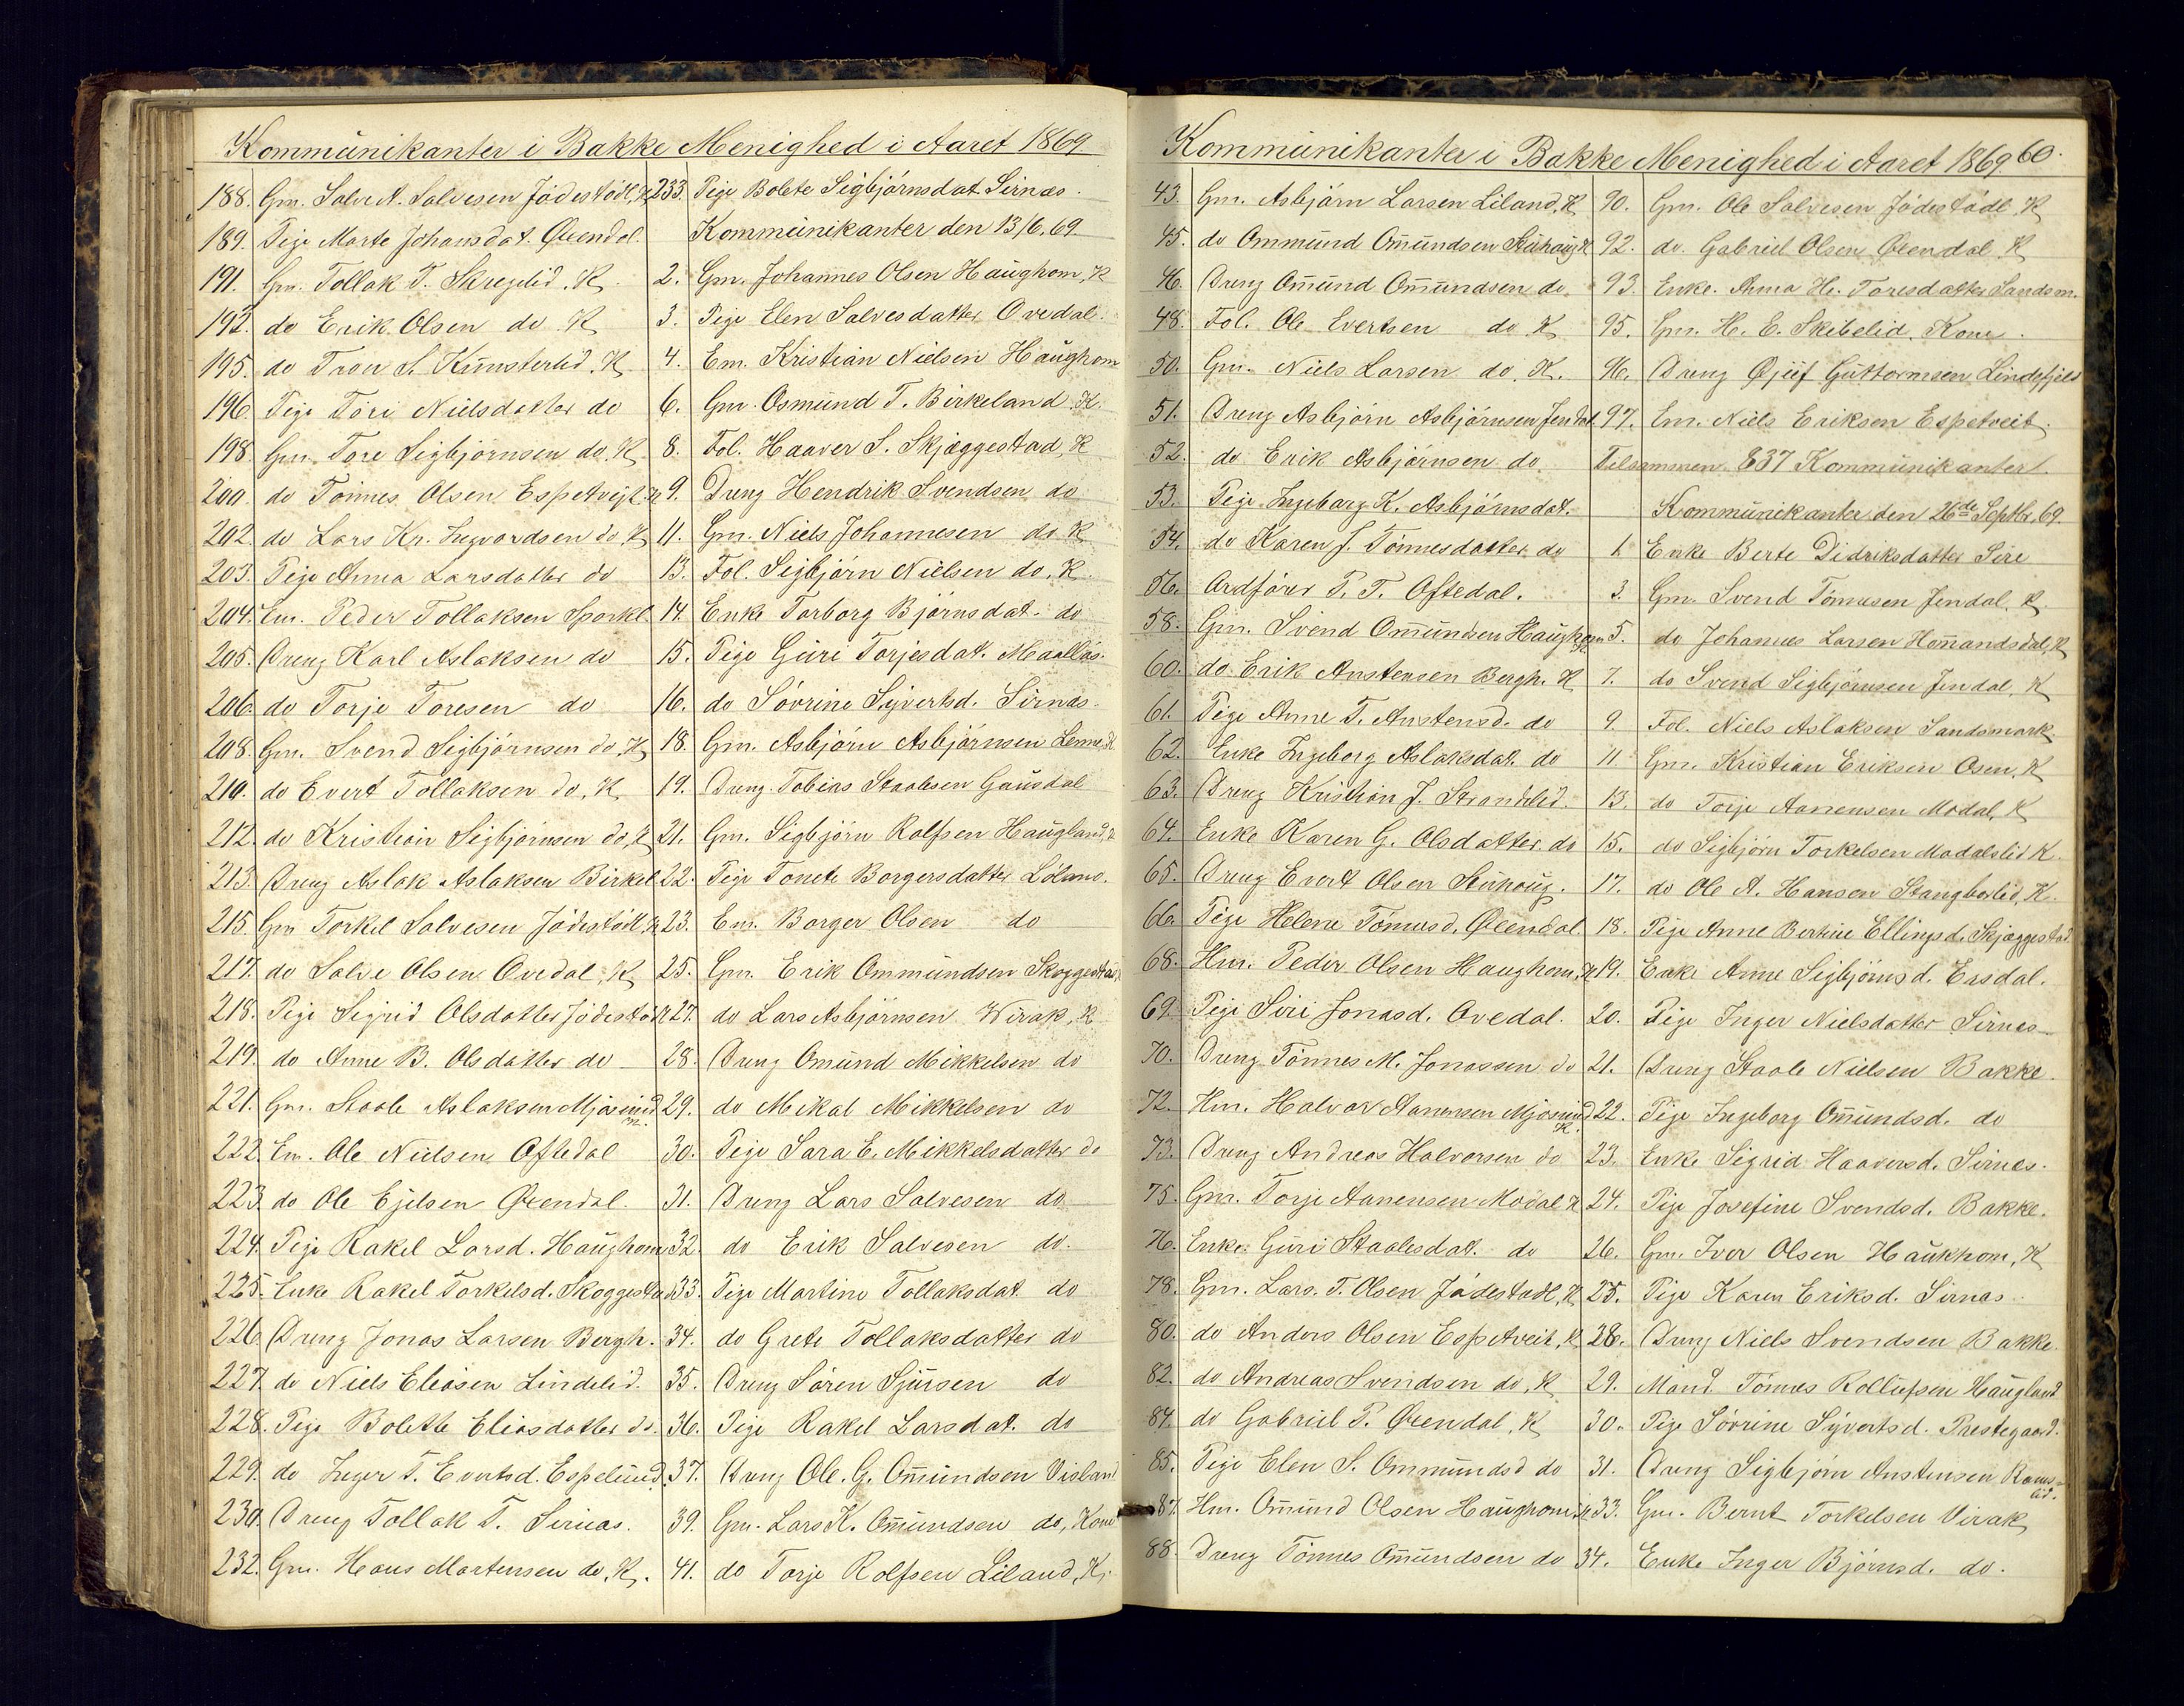 Kommünikanter i Bakke Menighed i Aaret 1869
188. Gm. Salve A. Salvesen Jödestödl, K
189. Pige Marte Johansdat. Øvendal.
191. Gm. Tollak T. Skregelid. K
192. do Erik Olsen do K
195. do Tron S. Künsterlid. K
196. Pige Tori Nielsdatter do
198. Gm. Tore Sigbjörnsen do. K
200. do Tönnes Olsen Espetvejt. K
202. do Lars Kr. Ingvardsen do K
203. Pige Anna Larsdatter do
204. Em. Peder Tollaksen Sporkl.
205. Dreng Karl Aslaksen do
206. do Torje Toresen do
208. Gm. Svend Sigbjörnsen do, K
210. do Evert Tollaksen do, K
212. do Kristian Sigbjörnsen do, K
213. Dreng Aslak Aslaksen Birkel
215. Gm Torkel Salvesen Jödestödl, K
217. do Salve Olsen Ovedal, K
218. Pige Sigrid Olsdatter Jödestödl
219. do Anne B. Olsdatter do
221. Gm. Staale Aslaksen Mjösund K.
222. Em. Ole Nielsen Oftedal
223. do Ole Ejelsen Øvendal.
224. Pige Rakel Larsd. Haüghom
225. Enke Rakel Torkelsd. Skoggestad
226. Dreng Jonas Larsen Bergh.
227. do Niels Eliasen Lindelid.
228. Pige Bolette Eliasdatter do.
229. do Inger T. Evertsd. Espelünd.
230. Dreng Tollak T. Sirnas.
232. Gm. Hans Martensen do, K.
233. Pige Bolete Sigbjörnsdat Sirnæs.
Kommünikanter den 13/6. 69
2. Gm. Johannes Olsen Haüghom, K
3. Pige Elen Salvesdatter Ovedal.
4. Em. Kristian Nielsen Haüghom
6. Gm. Osmünd T. Birkeland K.
8. Fol. Haaver S. Skjæggestad, K
9. Dreng Hendrik Svendsen do
11. Gm. Niels Johannesen do K
13. Fol. Sigbjörn Nielsen do, K.
14. Enke Torborg Björnsdat. do
15. Pige Güri Torjesdat. Maallas.
16. do Sövrine Syvertsd. Sirnas.
18. Gm. Asbjörn Asbjörnsen Lenne, K
19. Dreng. Tobias Staalesen Gaüsdal
21. Gm. Sigbjörn Rolfsen Haügland, K
22. Pige Tonete Borgersdatter Löland.
23. Em. Borger Olsen do
25. Gm. Erik Ommündsen Skoggestad
27. do Lars Asbjörnsen Wirak, K
28. Dreng Omünd Mikkelsen do
29. do Mikal Mikkelsen do
30. Pige Sara E. Mikkelsdatter do
31. Dreng Lars Salvesen do
32. do Erik Salvesen do.
33. Pige Martine Tollaksdat. do
34. do Grete Tollaksdatter do
35. Dreng Sören Sjürsen do
36. Pige Rakel Larsdat. do
37. Dreng Ole. G. Om̄ündsen Visland
39. Gm. Lars K. Om̄ündsen do, Kone
41. do Torje Rolfsen Liland, K.
Kommünikanter i Bakke Menighed i Aaret 1869. 60.
43. Gm. Asbjörn Larsen Liland, K
45. do Ommünd Om̄ündsen Stühaüg K
46. Dreng Om̄ünd Om̄ündsen do.
48. Fol. Ole Evertsen do K
50. Gm. Niels Larsen do. K.
51. Dreng Asbjörn Asbjörnsen Jendal
52. do Erik Asbjörnsen do.
53. Pige Ingeborg K. Asbjörnsdat.
54. do Karen J. Tönnesdatter do
56. Ordförer P. T. Oftedal.
58. Gm. Svend Om̄ündsen Haüghom K
60. do. Erik Anstensen Bergh. K
61. Pige Anne T. Anstensd. do
62. Enke Ingeborg Aslaksdat. do
63. Dreng Kristian J. Strandlid.
64. Enke Karen G. Olsdatter do
65. Dreng Evert Olsen Stühoüg.
66. Pige Helene Tönnesd. Øvendal.
68. Hm. Peder Olsen Haughom, K
69. Pige Siri Jonasd. Ovedal.
70. Dreng Tönnes M. Jonassen do
72. Hm. Halvor Aanensen Mjösund K.
73. Dreng Andreas Halvorsen do
75. Gm. Torje Aanensen Modal K
76. Enke Güri Staalesdat. do
78. Gm. Lars. T. Olsen Jödestödl, K
80. do Anders Olsen Espetveit, K
82. do Andreas Svendsen do, K
84. do Gabriel P. Øvendal, K
85. Pige Elen S. Ommündsd do
87. Hm. Om̄ünd Olsen Haüghom, K
88. Dreng Tönnes Om̄ündsen do
90. Gm. Ole Salvesen Jödestödl, K
92. do. Gabriel Olsen Øvendal K
93. Enke. Anna He. Toresdatter Sandsm.
95. Gm. H. E. Skibelid, Kone.
96. Dreng Guttormsen Lindefjeld
97. Em. Niels Eriksen Espetveit.
Tilsammen 837 Kommünikanter.
Kommünikanter den 26de Septbr, 69.
1. Enke Berte Didriksdatter Sire
3. Gm. Svend Tönnesen Jendal. K.
5. do Johannes Larsen Hom̄andsdal, K
7. do Svend Sigbjörnsen Jendal, K
9. Fol. Niels Aslaksen Sandsmark
11. Gm. Kristian Eriksen Osen, K
13. do Torje Aanensen Modal, K
15. do Sigbjörn Torkelsen Modalslid K.
17. do Ole A. Hansen Stangborlid, K.
18. Pige Anne Bertine Ellingsd. Skjæggestad
19. Enke Anne Sigbjörnsd. Ersdal.
20. Pige Inger Nielsdatter Sirnes
21. Dreng Staale Nielsen Bakke.
22. Pige Ingeborg Om̄ündsd. do
23. Enke Sigrid Haaversd. Sirnes.
24. Pige Josefine Svendsd. Bakke.
26. Gm. Iver Olsen Haükhom, K
25. Pige Karen Eriksd. Sirnas.
28. Dreng Niels Svendsen Bakke.
29. Mand Tönnes Rollufsen Haügland
30. Pige Sövrine Syvertsd. Prestegaard.
31. Dreng Sigbjörn Anstensen Rams=
lid.
33. Gm. Bernt Torkelsen Virak
34. Enke Inger Björnsd. do.